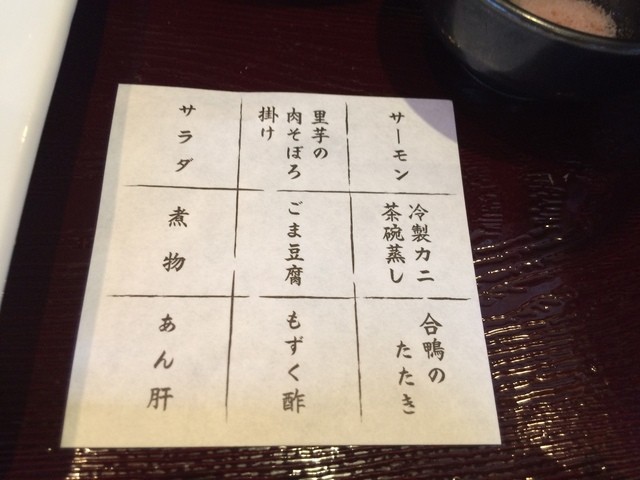 サーモン
里芋の
肉そぼろ
掛け
サラダ
冷製カニ
茶碗蒸し
ごま豆腐
煮物
合鴨の
たたき
もずく酢
あん肝